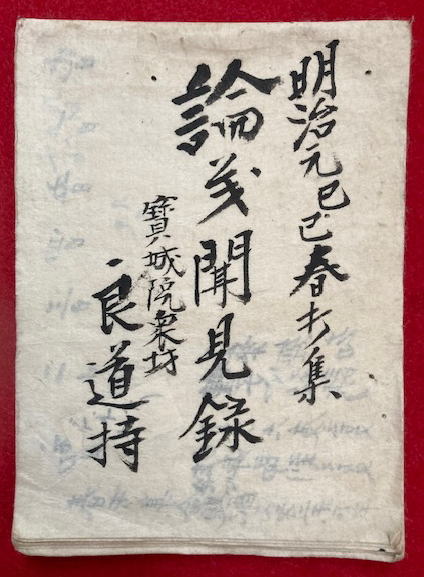 明治元己巳春集
論義聞見録
寳城院衆坊
良道持